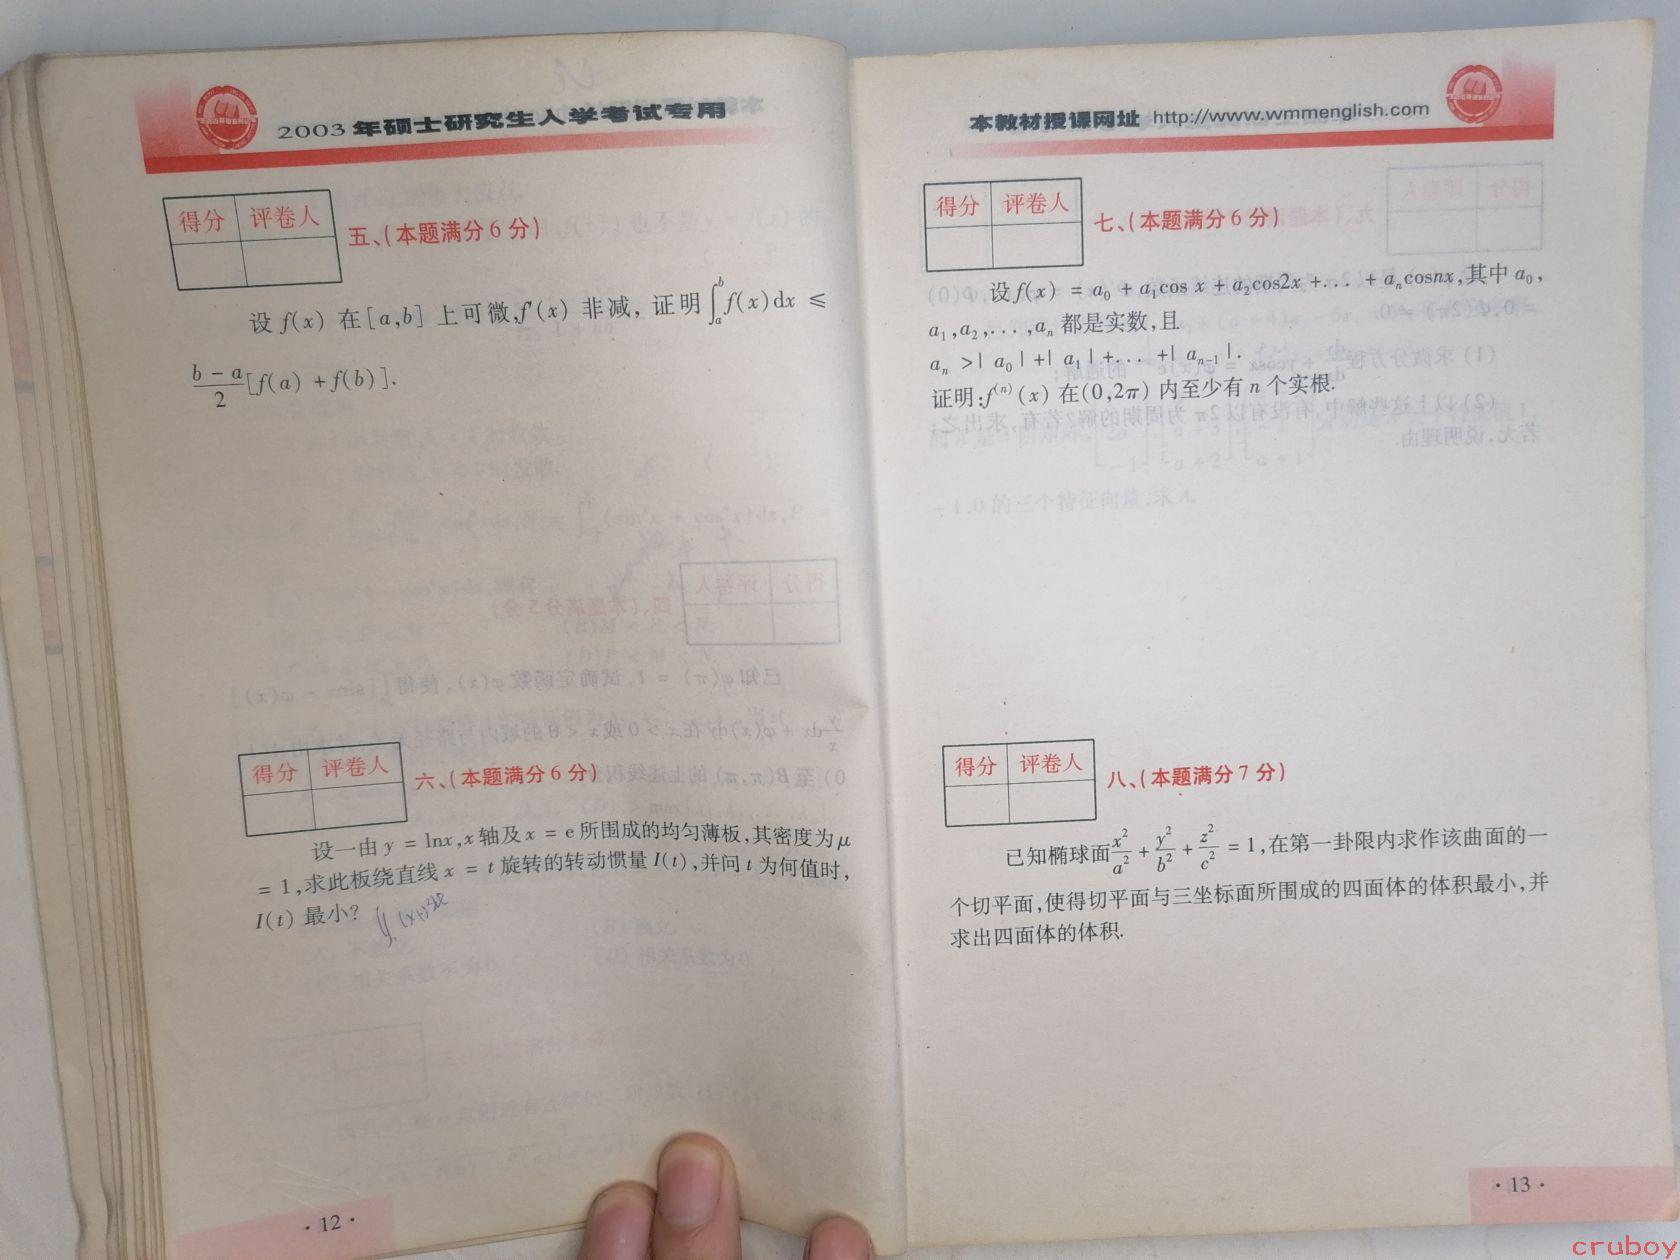 2003年硕士研究生入学考试专用
得分 评卷人
五、(本题满分6分)
设 f(x) 在[a,b] 上可微,f′(x) 非减, 证明∫ₐᵇ f(x)dx ≤
(b − a)/2 [f(a) + f(b)].
得分 评卷人
六、(本题满分6分)
设一由 y = lnx,x 轴及 x = e 所围成的均匀薄板,其密度为 μ
= 1,求此板绕直线 x = t 旋转的转动惯量 I(t),并问 t 为何值时,
I(t) 最小?
· 12 ·
本教材授课网址 http://www.wmmenglish.com
得分 评卷人
七、(本题满分6分)
设 f(x) = a₀ + a₁cos x + a₂cos2x +... + aₙcosnx,其中 a₀,
a₁,a₂,...,aₙ 都是实数,且
aₙ >| a₀ | +| a₁ | +... +| aₙ₋₁ |.
证明:f⁽ⁿ⁾(x) 在(0,2π) 内至少有 n 个实根.
得分 评卷人
八、(本题满分7分)
已知椭球面x²/a² + y²/b² + z²/c² = 1,在第一卦限内求作该曲面的一
个切平面,使得切平面与三坐标面所围成的四面体的体积最小,并
求出四面体的体积.
· 13 ·
cruboy